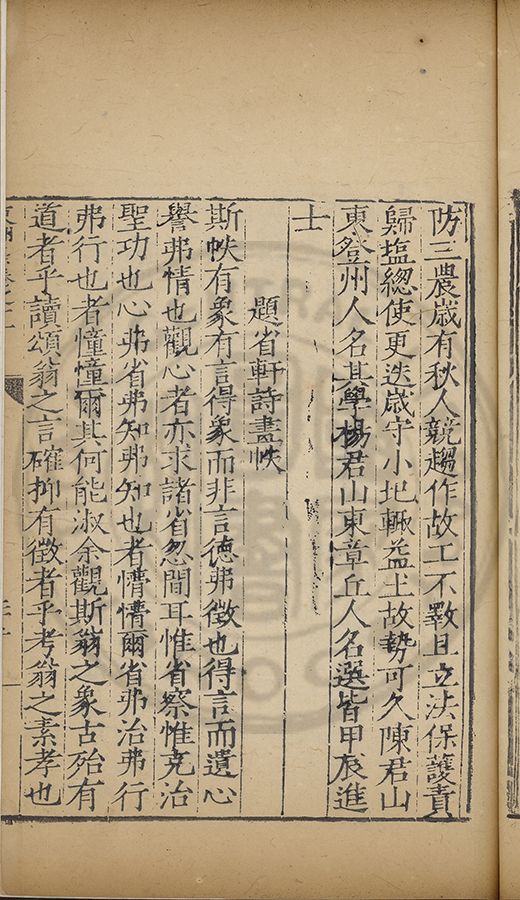 防三農歲有秋人競趨作故工不斁且立法保護責
歸塩總使更迭歲守小圯輙益土故勢可久陳君山
東登州人名其學楊君山東章丘人名選皆甲辰進
士
題省軒詩畫帙
斯帙有象有言得象而非言德弗徵也得言而遺心
譽弗情也觀心者亦求諸省忽間耳惟省察惟克治
聖功也心弗省弗知弗知也者懵懵爾省弗治弗行
弗行也者憧憧爾其何能淑余觀斯翁之象古殆有
道者乎讀頌翁之言確抑有徵者乎考翁之素孝也